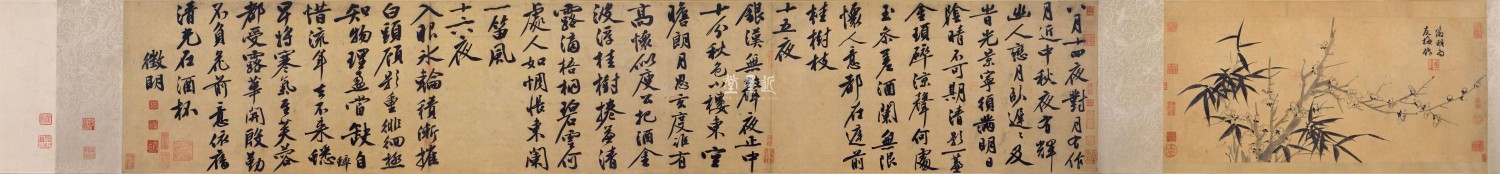 為明甫
八月十四夜對月有作
月近中秋夜有輝
幽人戀月臥遲遲及
旹光景寧須滿明日
陰晴不可期清影一簾
金瑣碎涼聲何處
玉參差酒闌無限
懷人意都在庭前
桂樹枝
十五夜
銀漢無聲夜正中
十分秋色小樓東空
瞻朗月思玄度誰有
高懷似庾公把酒金
波浮桂樹捲簾清
露滴梧桐碧雲何
處人如惆悵東闌
一笛風
十六夜
入眼冰輪積漸摧
白頭顧影重徘徊極
知物理盈當缺自
惜流年去不來蟋蟀
早將寒氣至芙蓉
都受露華開殷勤
不負花前意依舊
清光在酒杯
徵明